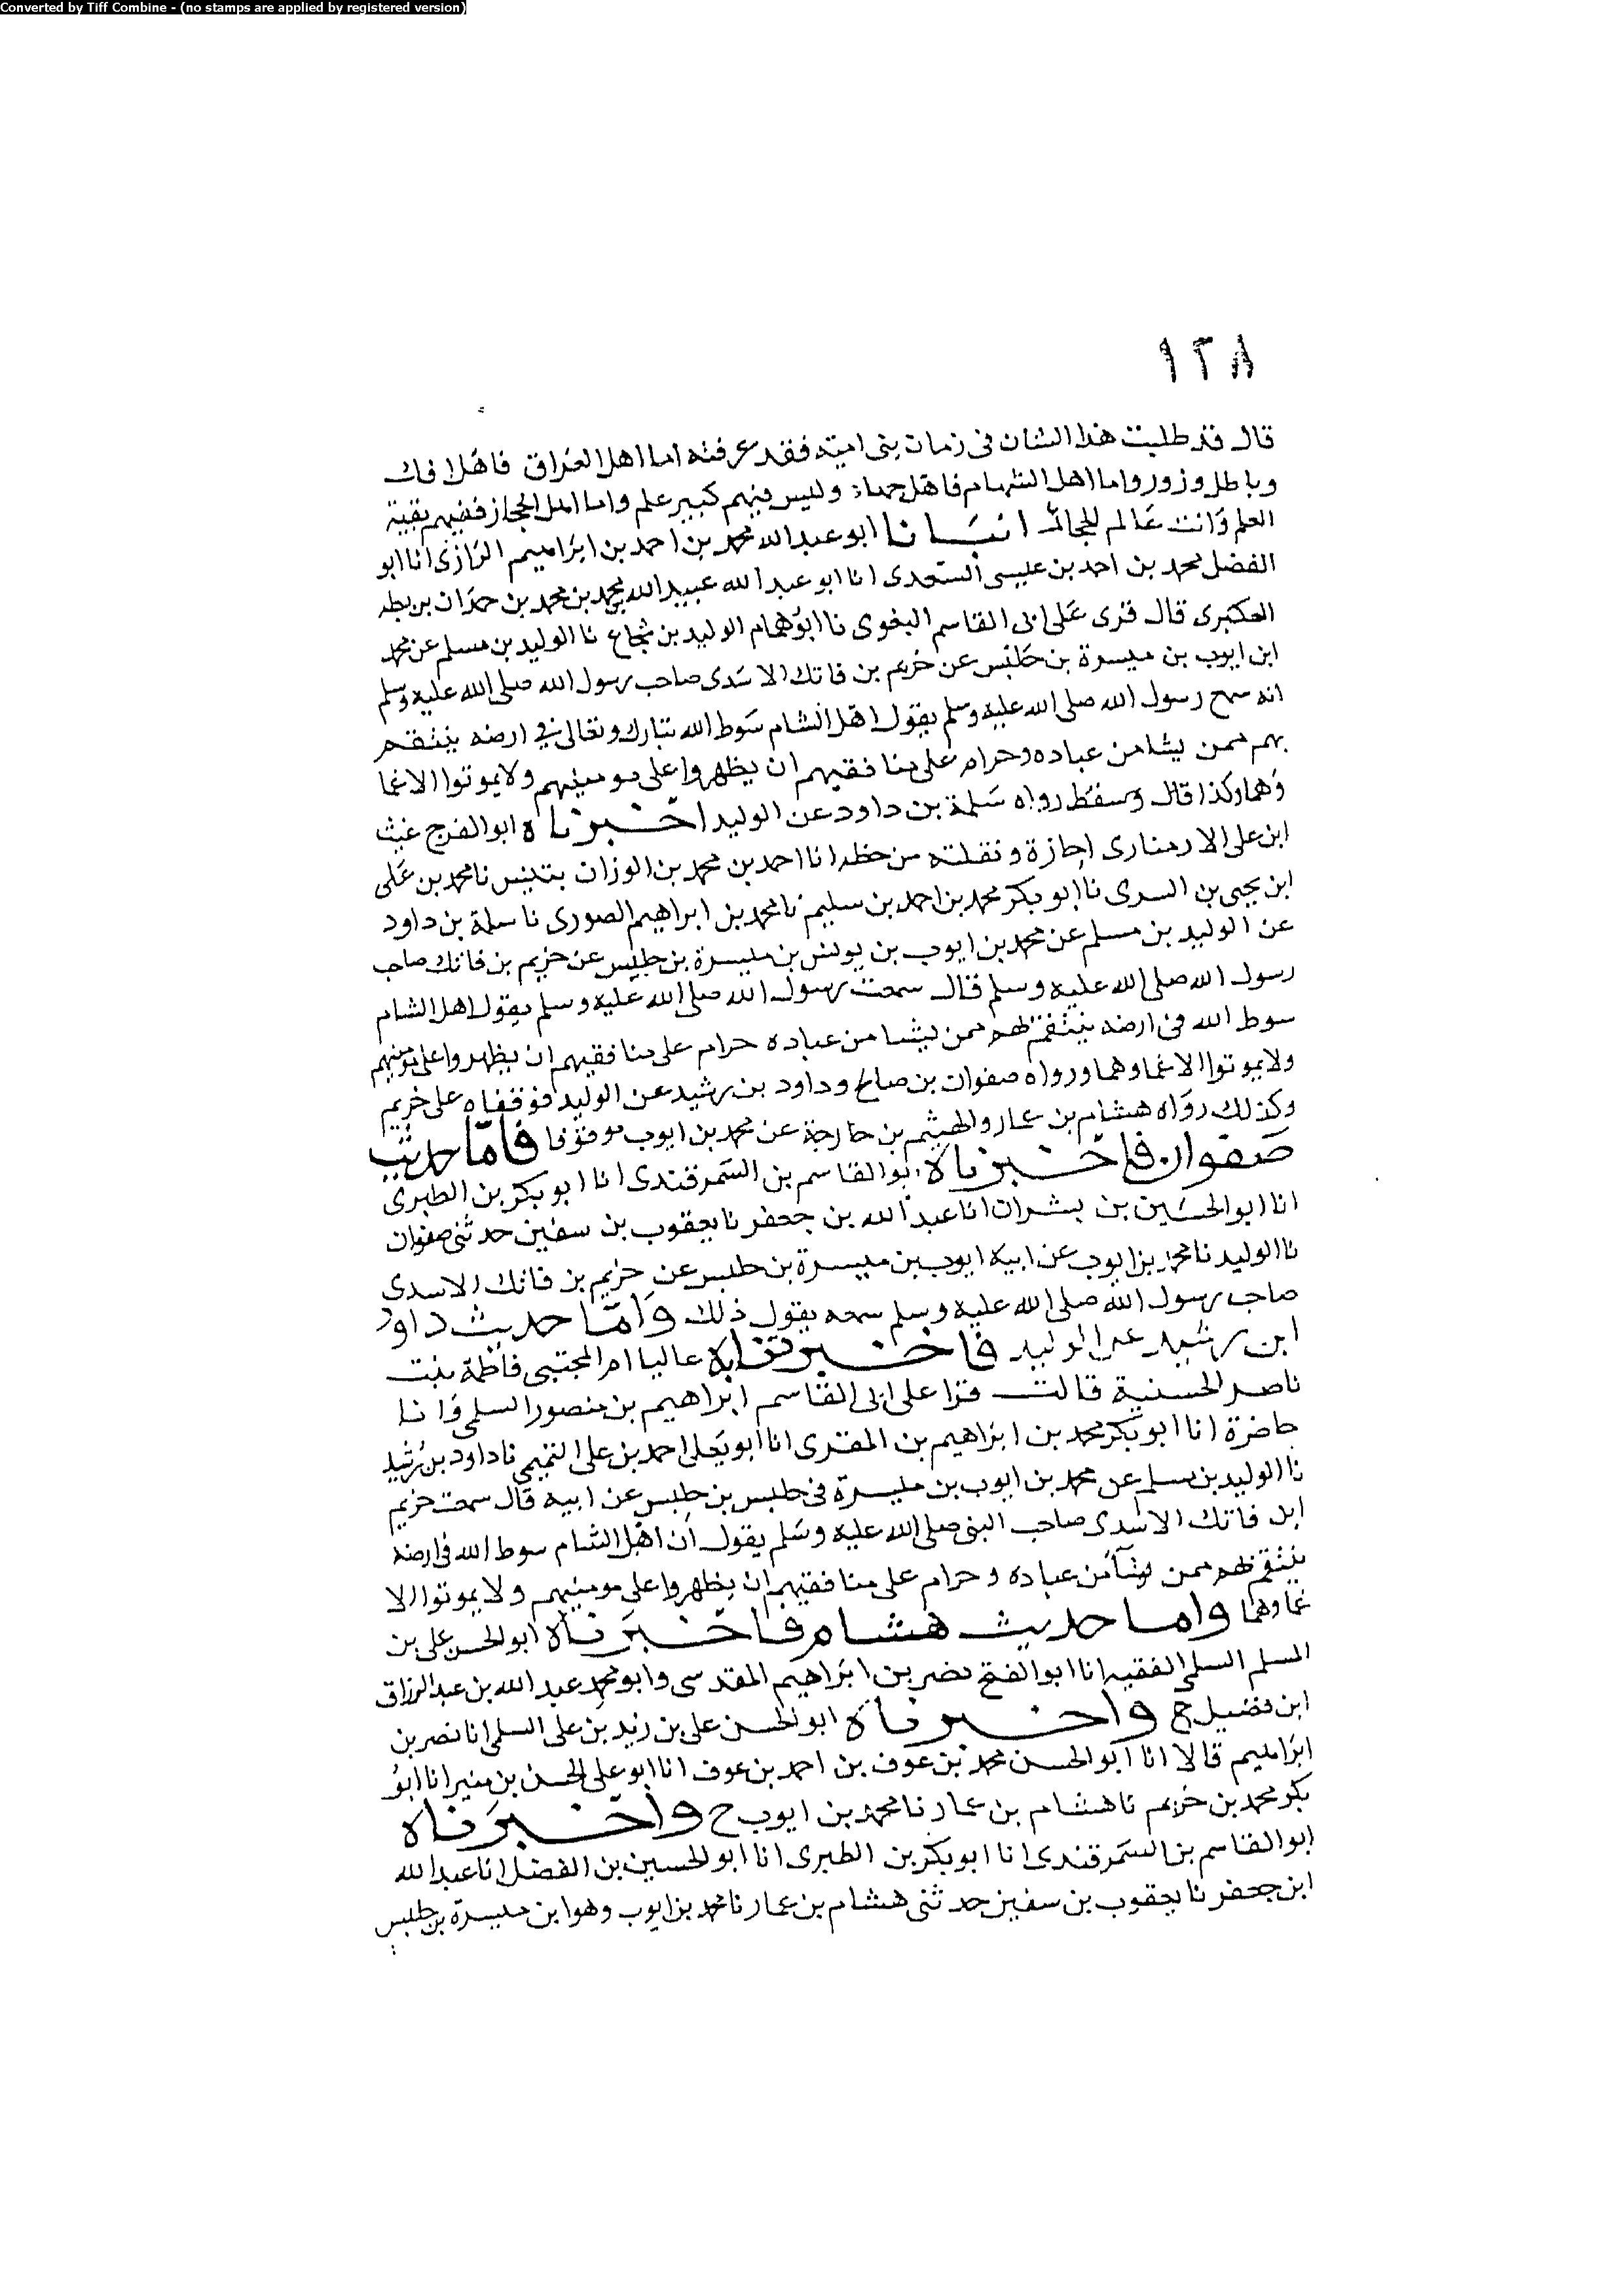 Converted by Tiff Combine - (no stamps are applied by registered version)
١٢٨
قال قد طلبت هذا الشان فى زمان بنى امية فقد عرفته اما اهل العراق فاهل افك
وباطل وزور واما اهل الشام فاهل جهاد وليس فيهم كبير علم واما اهل الحجاز ففيهم بقية
العلم وانت عالم الحجاز انبانا ابو عبد الله محمد بن احمد بن ابراهيم الرازى انا ابو
الفضل محمد بن احمد بن عليسى السعدى انا ابو عبد الله عبيد الله بن محمد بن محمد بن حمدان بن بطه
العكبرى قال قرى على ابى القاسم البغوى نا ابو همام الوليد بن شجاع نا الوليد بن مسلم عن محمد
ابن ايوب بن ميسرة بن حلبس عن خريم بن فاتك الاسدى صاحب رسول الله صلى الله عليه وسلم
انه سمع رسول الله صلى الله عليه وسلم يقول اهل الشام سوط الله تبارك وتعالى في ارضه ينتقم
بهم ممن يشا من عباده وحرام على منافقيهم ان يظهروا على مومنيهم ولا يموتوا الا غما
وهما وكذا قال وسقط رواه سلمة بن داود عن الوليد اخبرناه ابو الفرج غيث
ابن على الارمنازى اجازة ونقلته من خطه انا احمد بن محمد بن الوزان بتنيس نا محمد بن على
ابن يحيى بن السرى نا ابو بكر محمد بن احمد بن سليم نا محمد بن ابراهيم الصورى نا سلمة بن داود
عن الوليد بن مسلم عن محمد بن ايوب بن يونس بن ميسرة بن حلبس عن خريم بن فاتك صاحب
رسول الله صلى الله عليه وسلم قال سمعت رسول الله صلى الله عليه وسلم يقول اهل الشام
سوط الله فى ارضه ينتقم بهم ممن يشا من عباده حرام على منافقيهم ان يظهروا على مومنيهم
ولا يموتوا الا غما وهما ورواه صفوان بن صالح وداود بن رشيد عن الوليد فوقفاه على خريم
وكذلك رواه هشام بن عمار والهيثم بن خارجة عن محمد بن ايوب موقوفا فاما حديث
صفوان فاخبرناه ابو القاسم بن السمرقندى انا ابو بكر بن الطبرى
انا ابو الحسين بن بشران انا عبد الله بن جعفر نا يعقوب بن سفين حدثنى صفوان
نا الوليد نا محمد بن ايوب عن ابيه ايوب بن ميسرة بن حلبس عن خريم بن فاتك الاسدى
صاحب رسول الله صلى الله عليه وسلم سمعه يقول ذلك واما حديث داود
ابن رشيد عن الوليد فاخبرتناه عاليا ام المجتبى فاطمة بنت
ناصر الحسنية قالت قرا على ابى القاسم ابراهيم بن منصور السلمى وانا
حاضرة انا ابو بكر محمد بن ابراهيم بن المقرى انا ابو يعلى احمد بن على التميمى نا داود بن رشيد
نا الوليد بن مسلم عن محمد بن ايوب بن ميسرة فى حلبس بن حلبس عن ابيه قال سمعت خريم
ابن فاتك الاسدى صاحب النبى صلى الله عليه وسلم يقول ان اهل الشام سوط الله فى ارضه
ينتقم بهم ممن يشآ من عباده وحرام على منافقيهم ان يظهروا على مومنيهم ولا يموتوا الا
غما وهما واما حديث هشام فاخبرناه ابو الحسن على بن
المسلم السلمى الفقيه انا ابو الفتح نصر بن ابراهيم المقدسى وابو محمد عبد الله بن عبد الرزاق
ابن فضيل ح واخبرناه ابو الحسن على بن زيد بن على السلمى انا نصر بن
ابراهيم قالا انا ابو الحسن محمد بن عوف بن احمد بن عوف انا ابو على الحسن بن منير انا ابو
بكر محمد بن خريم نا هشام بن عمار نا محمد بن ايوب ح واخبرناه
ابو القاسم بن السمرقندى انا ابو بكر بن الطبرى انا ابو الحسين بن الفضل انا عبد الله
ابن جعفر نا يعقوب بن سفين حدثنى هشام بن عمار نا محمد بن ايوب وهو ابن ميسرة بن حلبس